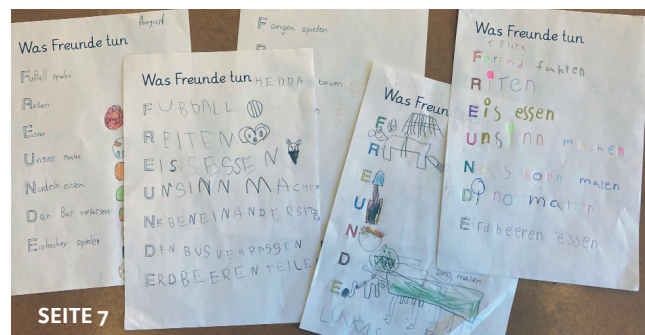 August
Was Freunde tun
Fußball spielen
Reiten
Essen
Unsinn machen
Nudeln essen
Den Bus verpassen
Eishockey spielen
Was Freunde tun
FUßBALL
REITEN
EISISESSEN
UNSINN MACHEN
NEBENEINANDERSITZ
DEN BUS VERPASSEN
ERDBEERENTEILE
Fangen spielen
HEDDA bauen
Was Freun
F
R
E
U
N
D
E
Dino malen
LUKAS
Was Freunde tun
Flora
Fahrrad fahren
REITEN
Eis essen
Unsinn machen
Nashorn malen
Dino malen
Erdbeeren essen
SEITE 7